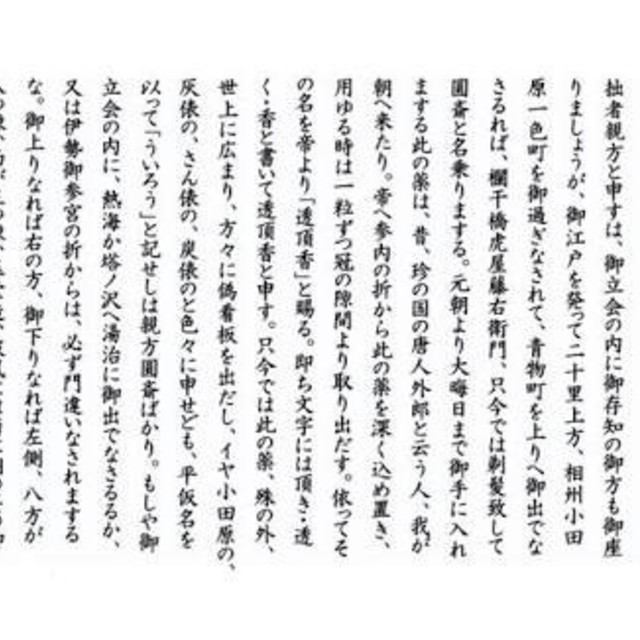 拙者親方と申すは、御立会の内に御存知の御方も御座
りましょうが、御江戸を発って二十里上方、相州小田
原一色町を御過ぎなされて、青物町を上りへ御出でな
さるれば、欄干橋虎屋藤右衛門、只今では剃髪致して
圓斎と名乗りまする。元朝より大晦日まで御手に入れ
まする此の薬は、昔、珍の国の唐人外郎と云う人、我が
朝へ来たり。帝へ参内の折から此の薬を深く込め置き、
用ゆる時は一粒ずつ冠の隙間より取り出だす。依ってそ
の名を帝より「透頂香」と賜る。即ち文字には頂き・透
く・香と書いて透頂香と申す。只今では此の薬、殊の外、
世上に広まり、方々に偽看板を出だし、イヤ小田原の、
灰俵の、さん俵の、炭俵のと色々に申せども、平仮名を
以って「ういろう」と記せしは親方圓斎ばかり。もしや御
立会の内に、熱海か塔ノ沢へ湯治に御出でなさるるか、
又は伊勢御参宮の折からは、必ず門違いなされまする
な。御上りなれば右の方、御下りなれば左側、八方が